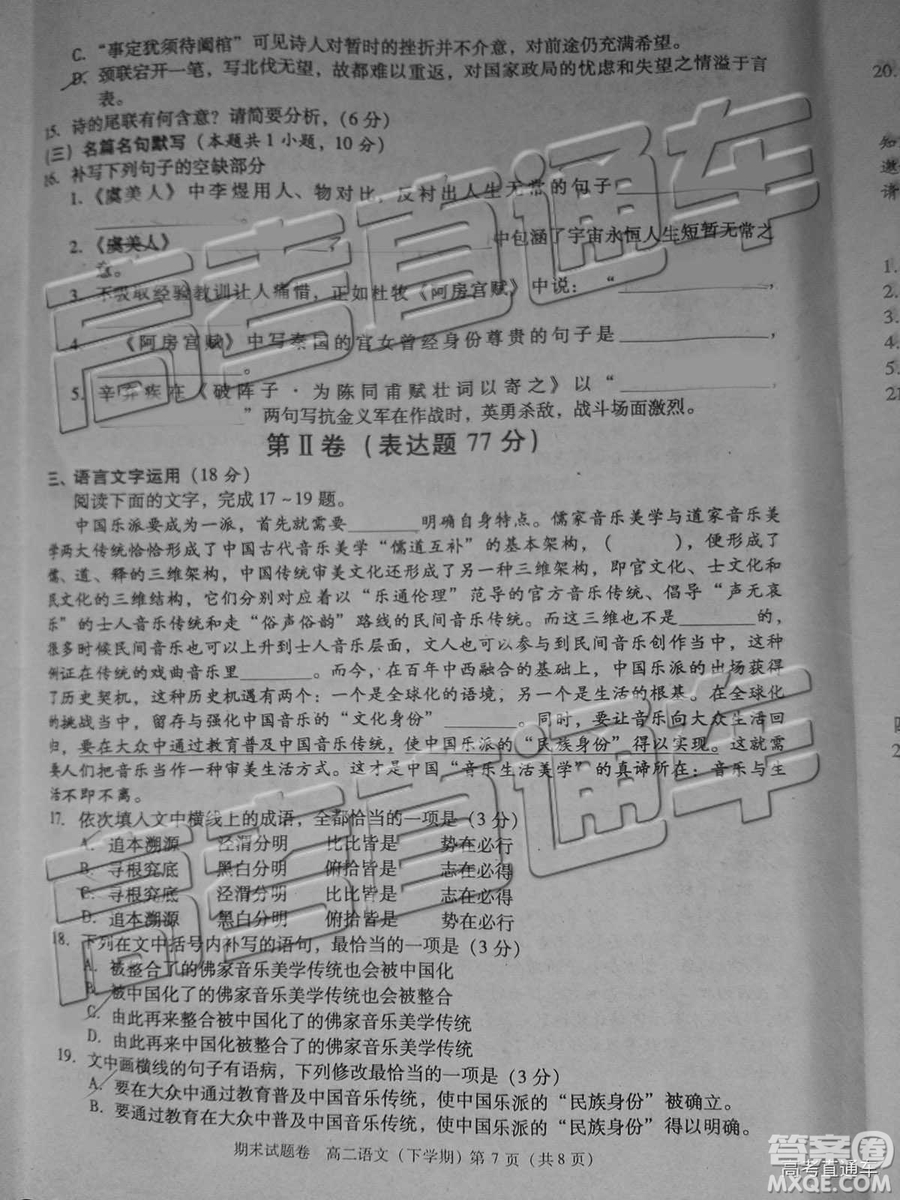 C. “事定犹须待阖棺”可见诗人对暂时的挫折并不介意，对前途仍充满希望。
D. 颈联宕开一笔，写北伐无望，故都难以重返，对国家政局的忧虑和失望之情溢于言
表。
15. 诗的尾联有何含意？请简要分析，（6分）
(三) 名篇名句默写（本题共1小题，10分）
16. 补写下列句子的空缺部分
1. 《虞美人》中李煜用人、物对比，反衬出人生无常的句子____________，
____________。
2. 《虞美人》____________，____________中包涵了宇宙永恒人生短暂无常之
意。
3. 不吸取经验教训让人痛惜，正如杜牧《阿房宫赋》中说：“____________，
____________
4. 《阿房宫赋》中写秦国的宫女曾经身份尊贵的句子是____________，
____________。
5. 辛弃疾在《破阵子·为陈同甫赋壮词以寄之》以“____________，
____________”两句写抗金义军在作战时，英勇杀敌，战斗场面激烈。
第Ⅱ卷（表达题77分）
三、语言文字运用（18分）
阅读下面的文字，完成17~19题。
中国乐派要成为一派，首先就需要______明确自身特点。儒家音乐美学与道家音乐美
学两大传统恰恰形成了中国古代音乐美学“儒道互补”的基本架构，（　　），便成为
儒、道、释的三维架构，中国传统审美文化还形成了另一种三维结构，即官文化、士文化和
民文化的三维结构，它们分别对应着以“乐通伦理”范导的官方音乐传统、倡导“声无哀
乐”的士人音乐传统和走“俗声俗韵”路线的民间音乐传统。而这三维也不是______的，
很多时候民间音乐也可以上升到士人音乐层面，文人也可以参与到民间音乐创作当中，这
例证在传统的戏曲音乐里______。而今，在百年中西融合的基础上，中国乐派的出场获得
了历史契机，这种历史机遇有两个：一个是全球化的语境，另一个是生活的根基。在全球化
的挑战当中，留存与强化中国音乐的“文化身份”______。同时，要让音乐向大众生活回
归，要在大众中通过教育普及中国音乐传统，使中国乐派的“民族身份”得以实现。要让
人们把音乐当作一种审美生活方式。这才是中国“音乐生活美学”的真谛所在：音乐与生
活不即不离。
17. 依次填入文中横线上的成语，全都恰当的一项是（3分）
A. 追本溯源　泾渭分明　比比皆是　势在必行
B. 寻根究底　黑白分明　俯拾皆是　志在必得
C. 寻根究底　泾渭分明　比比皆是　志在必得
D. 追本溯源　黑白分明　俯拾皆是　势在必行
18. 下列在文中括号内补写的语句，最恰当的一项是（3分）
A. 被整合了的佛家音乐美学传统也会被中国化
B. 被中国化了的佛家音乐美学传统也会被整合
C. 由此再来整合被中国化了的佛家音乐美学传统
D. 由此再来中国化被整合了的佛家音乐美学传统
19. 文中画横线的句子有语病，下列修改最恰当的一项是（3分）
A. 要在大众中通过教育普及中国音乐传统，使中国乐派的“民族身份”被确立。
B. 要通过教育在大众中普及中国音乐传统，使中国乐派的“民族身份”得以实现。
期末试题卷　高二语文（下学期）第7页（共8页）
20.
知
邀
请
1.
2.
3.
4.
21
四
2
高考直通车
高考直通车
答案圈
高考直通车
MXQE.COM